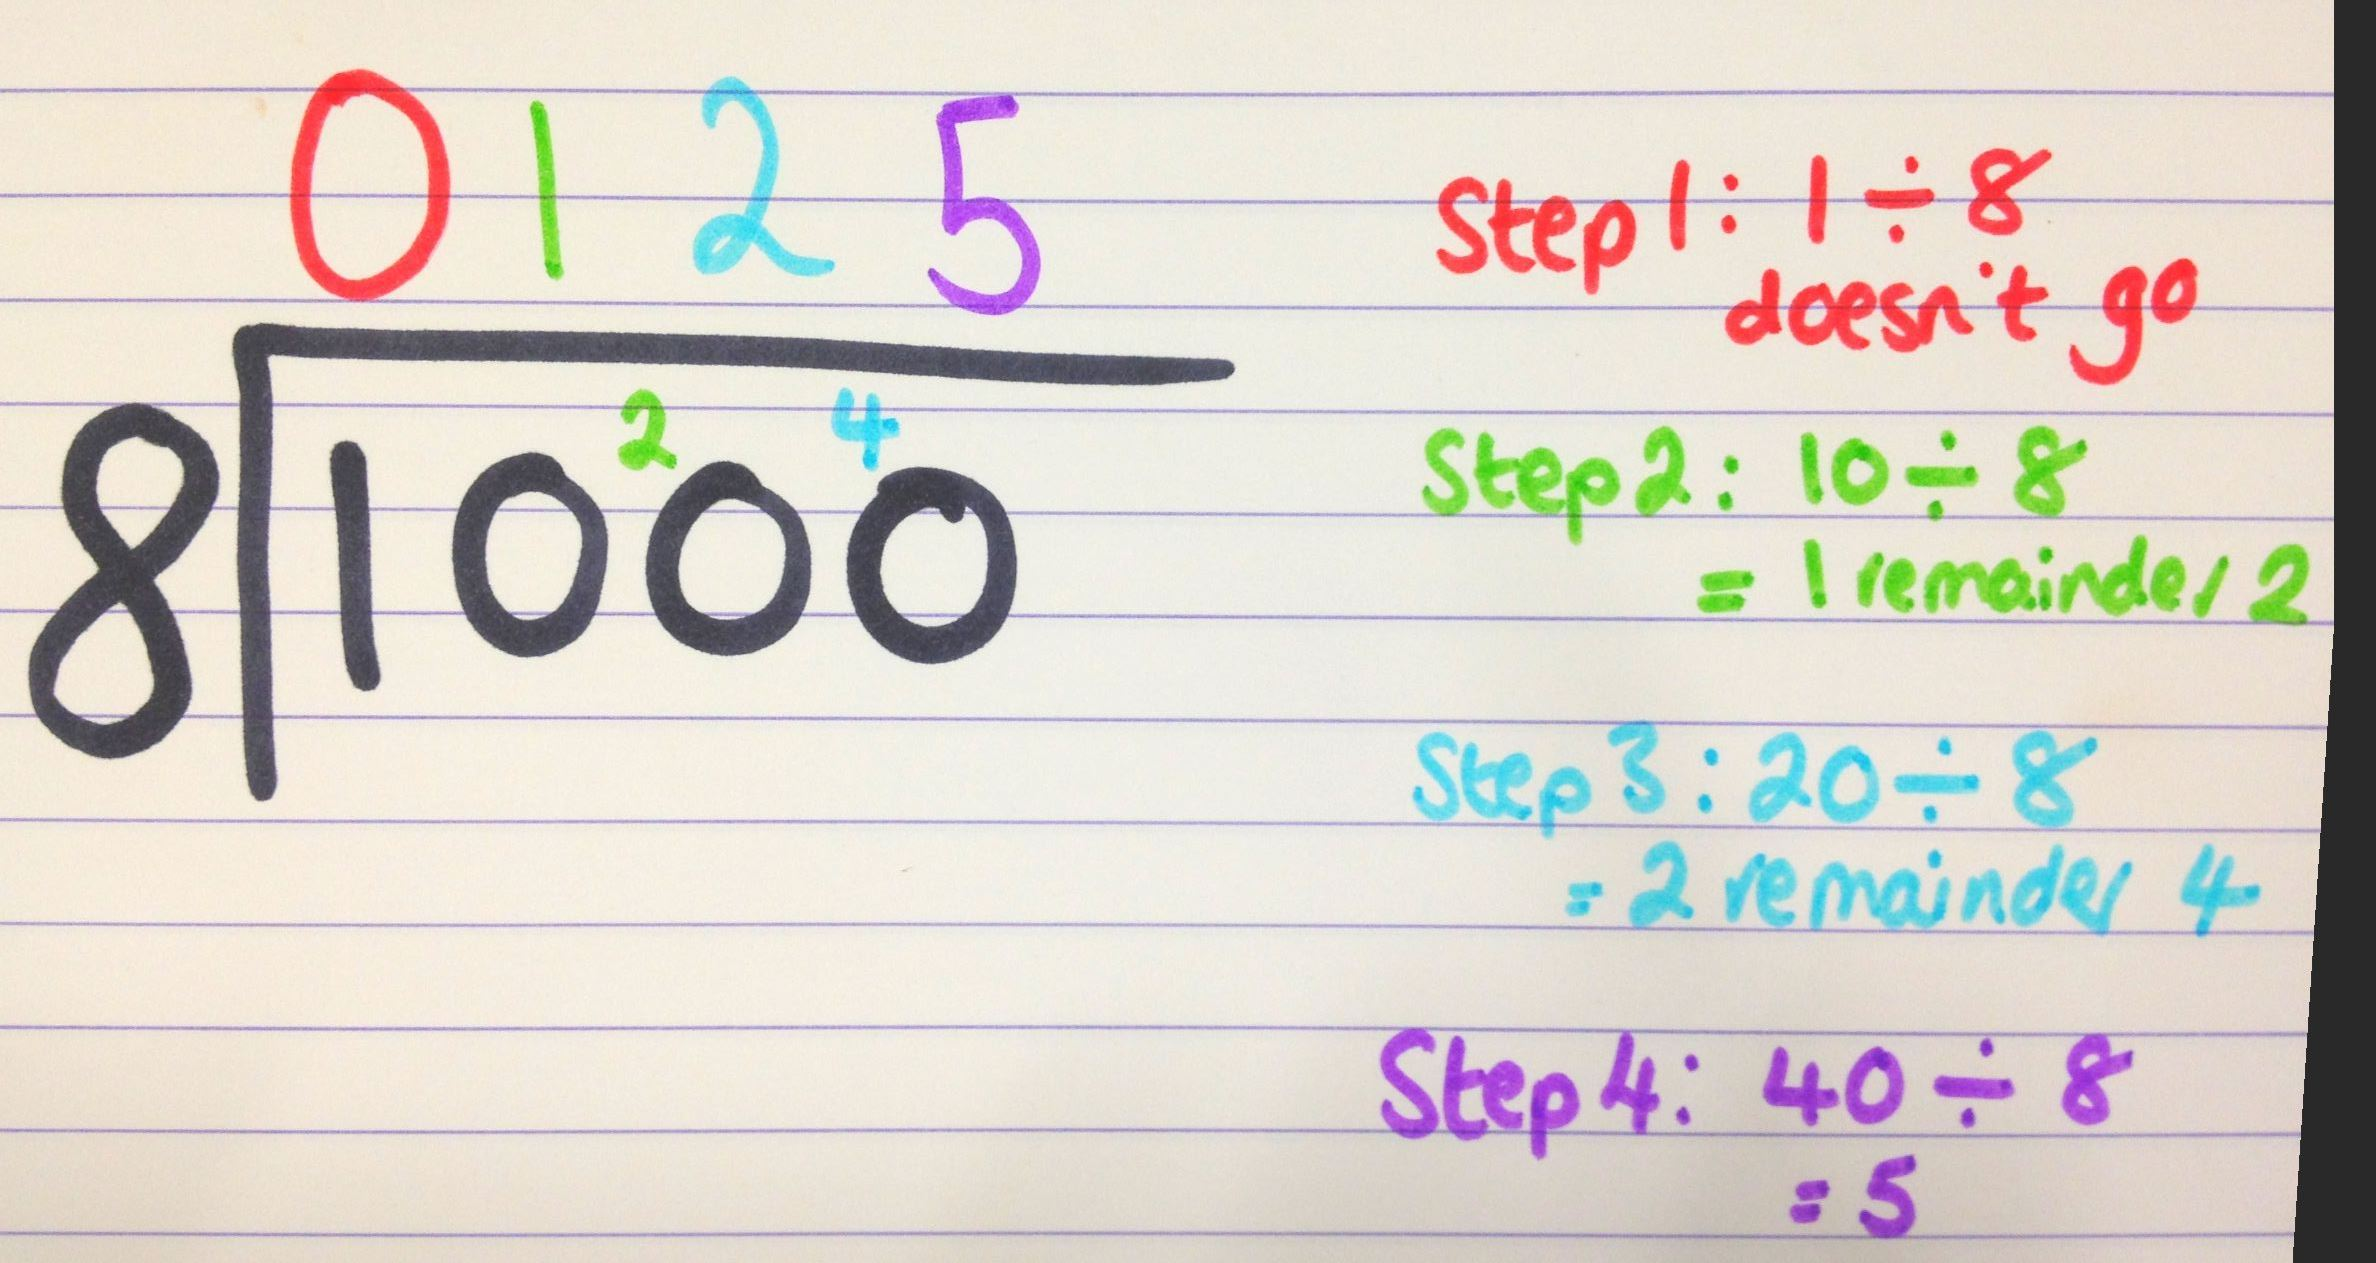 0 1 2 5
8 1 0 2 0 4 0
Step 1: 1 ÷ 8
doesn't go
Step 2: 10 ÷ 8
= 1 remainder 2
Step 3: 20 ÷ 8
= 2 remainder 4
Step 4: 40 ÷ 8
= 5